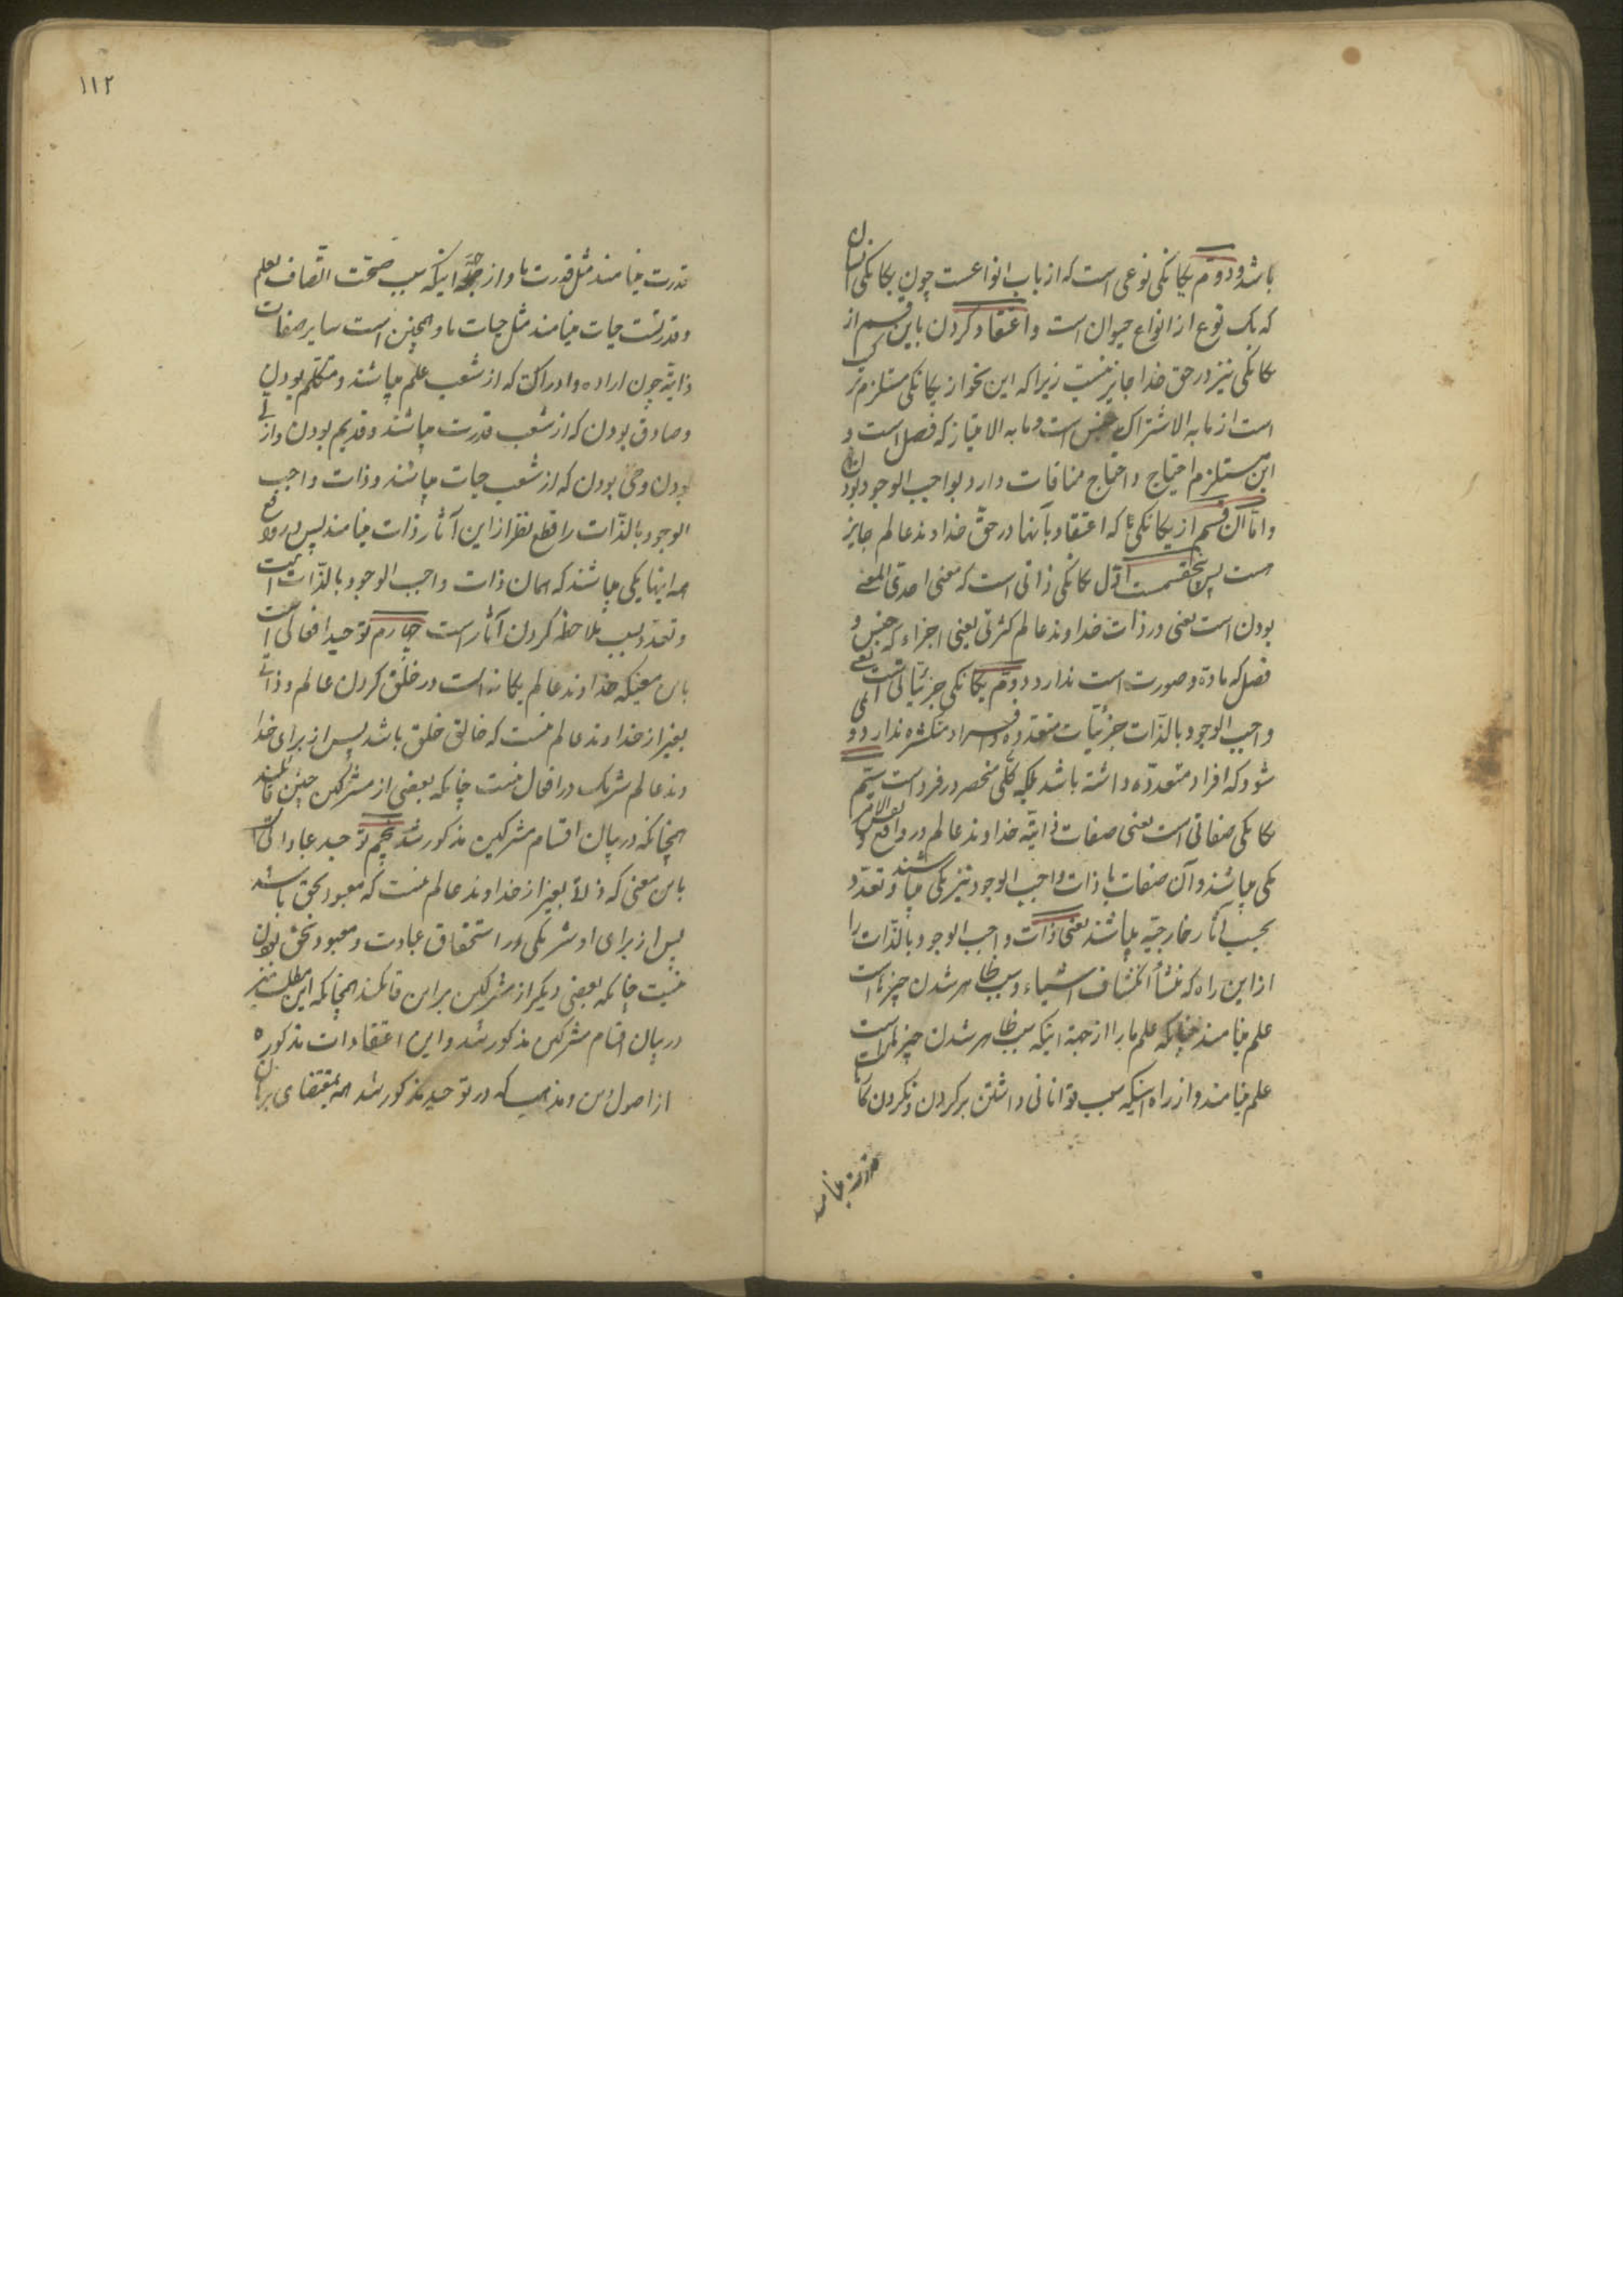 باشد و دوّم یکانکی نوعی است که از باب انواعست چون یکانکی انسان
که یک نوع از انواع حیوان است و اعتقاد کردن باین قسم از
یکانکی نیز در حق خدا جایز نیست زیرا که این نحو از یکانکی مستلزم ترکیب
است از ما به الاشتراک که جنس است و ما به الامتیاز که فصل است و
این مستلزم احتیاج و احتیاج منافات دارد بواجب الوجود بودن
و امّا آن قسم از یکانکی که اعتقاد بآنها در حقّ خداوند عالم جایز
است پس پنجقسمست اوّل یکانکی ذاتی است که معنی احدیّ المعنی
بودن است یعنی در ذات خداوند عالم کثرتی یعنی اجزاء که جنس و
فصل که مادّه و صورت است ندارد و دوّم یکانکی جزئیّاتی است یعنی
واجب الوجود بالذّات جزئیّات متعدّده و افراد متکثّره ندارد و
شود که افراد متعدّده داشته باشد بلکه کلّی منحصر در فرد است سیّم
یکانکی صفاتی است یعنی صفات ذاتیّه خداوند عالم در واقع و نفس الامر
یکی میباشند و آن صفات با ذات واجب الوجود نیز یکی میباشند و تعدّد
بحسب آثار خارجیّه میباشند یعنی ذات واجب الوجود بالذّات را
از این راه که منشأ انکشاف اشیاء و سبب ظاهر شدن چیزهاست
علم مینامند چنانکه علم ما را از جهة اینکه سبب ظاهر شدن چیزهاست
علم مینامند و از راه اینکه سبب توانائی داشتن بر کردن و نکردن کارها
قدرت مینامند
۱۱۲
قدرت مینامند مثل قدرت ما و از جهة اینکه سبب صحّت اتّصاف بعلم
و قدرتست حیات مینامند مثل حیات ما و همچنین است سایر صفات
ذاتیّه چون اراده و ادراک که از شعب علم میباشند و متکلّم بودن
و صادق بودن که از شعب قدرت میباشند و قدیم بودن و ازلی
بودن و حیّ بودن که از شعب حیات میباشند و ذات واجب
الوجود بالذّات را قطع نظر از این آثار ذات مینامند پس در واقع
همه اینها یکی میباشند که همان ذات واجب الوجود بالذّات است
و تعدّد بسبب ملاحظه کردن آثار است چهارم توحید افعالی است
باین معنیکه خداوند عالم یکانه است در خلق کردن عالم و ذاتی
بغیر از خداوند عالم نیست که خالق خلق باشد پس از برای خدا
وند عالم شریک در افعال نیست چنانکه بعضی از مشرکین چنین قائلند
همچنانکه در بیان اقسام مشرکین مذکور شد پنجم توحید عباداتی است
باین معنی که ذاتی بغیر از خداوند عالم نیست که معبود بحق باشد
پس از برای او شریکی در استحقاق عبادت و معبود بحق بودن
نیست چنانکه بعضی دیکر از مشرکین بر این قائلند همچنانکه این مطلب نیز
در بیان اقسام مشرکین مذکور شد و این اعتقادات مذکوره
از اصول دین و مذهب که در توحید مذکور شد همه بمقتضای برهان